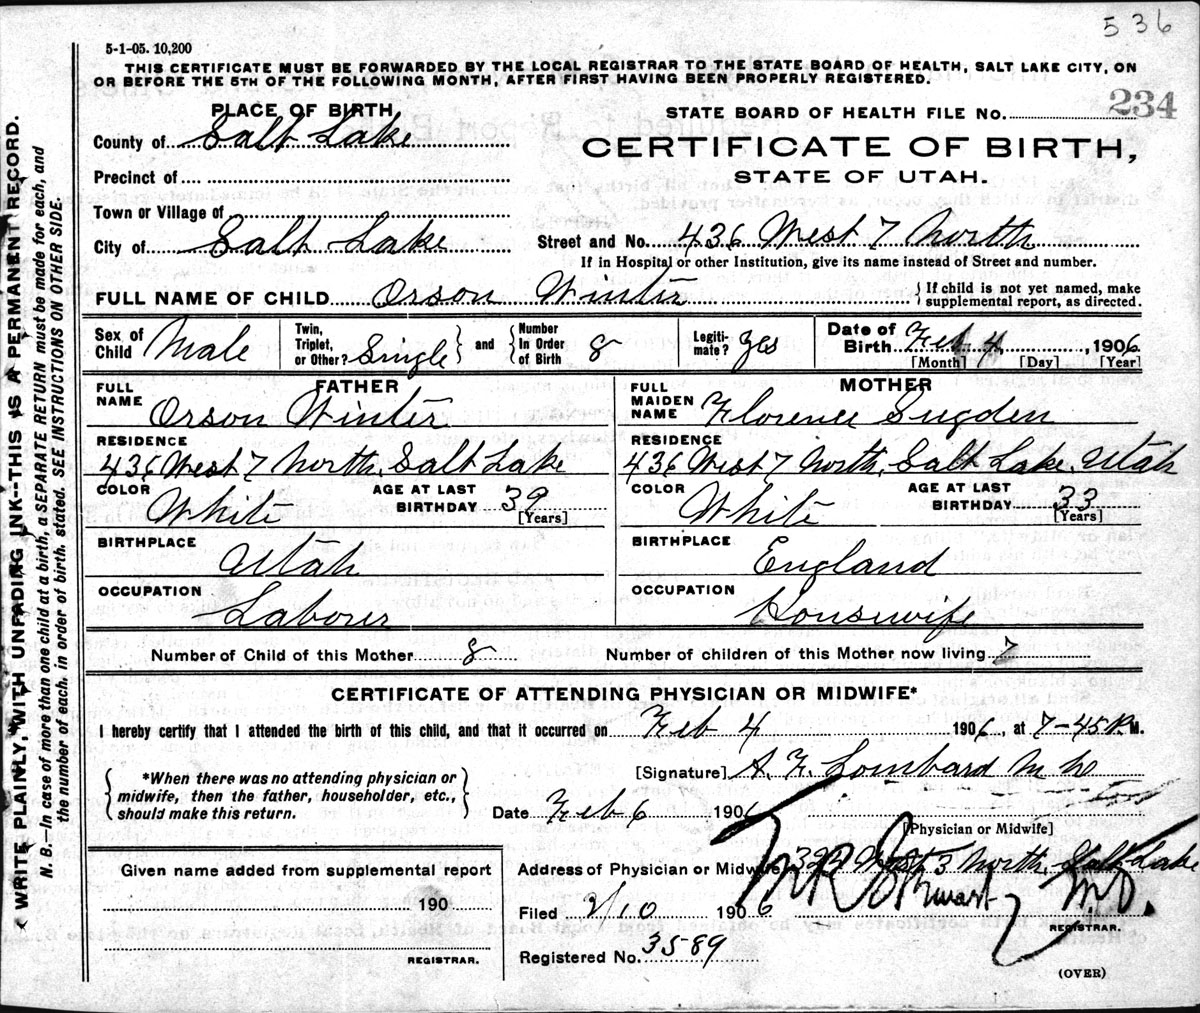 536
5-1-05. 10,200
THIS CERTIFICATE MUST BE FORWARDED BY THE LOCAL REGISTRAR TO THE STATE BOARD OF HEALTH, SALT LAKE CITY, ON
OR BEFORE THE 5TH OF THE FOLLOWING MONTH, AFTER FIRST HAVING BEEN PROPERLY REGISTERED.
PLACE OF BIRTH,
STATE BOARD OF HEALTH FILE No. 234
County of Salt Lake
CERTIFICATE OF BIRTH,
Precinct of
STATE OF UTAH.
Town or Village of
City of Salt Lake
Street and No. 436 West 7 North
If in Hospital or other Institution, give its name instead of Street and number.
FULL NAME OF CHILD Orson Winter
{If child is not yet named, make
supplemental report, as directed.
Sex of Child Male
Twin, Triplet, or Other? Single } and { Number In Order of Birth 8
Legiti-mate? Yes
Date of Birth Feb 4, 1906
[Month] [Day] [Year]
FATHER
FULL NAME Orson Winter
RESIDENCE
436 West 7 North, Salt Lake
COLOR White
AGE AT LAST BIRTHDAY 39
[Years]
BIRTHPLACE
Utah
OCCUPATION
Laborer
MOTHER
FULL MAIDEN NAME Florence Sugden
RESIDENCE
436 West 7 North, Salt Lake, Utah
COLOR White
AGE AT LAST BIRTHDAY 33
[Years]
BIRTHPLACE
England
OCCUPATION
Housewife
Number of Child of this Mother 8
Number of children of this Mother now living 7
CERTIFICATE OF ATTENDING PHYSICIAN OR MIDWIFE*
I hereby certify that I attended the birth of this child, and that it occurred on Feb 4 1906, at 7-45 P. M.
{*When there was no attending physician or
midwife, then the father, householder, etc.,
should make this return.}
[Signature] A. F. Lombard
Date Feb 6 1906
[Physician or Midwife]
Given name added from supplemental report
190
REGISTRAR.
Address of Physician or Midwife West 3 North, Salt Lake
Filed 2/10 1906
Stewart M.D.
REGISTRAR.
Registered No. 3589
(OVER)
WRITE PLAINLY, WITH UNFADING INK--THIS IS A PERMANENT RECORD.
N. B.--In case of more than one child at a birth, a SEPARATE RETURN must be made for each, and
the number of each, in order of birth, stated. SEE INSTRUCTIONS ON OTHER SIDE.